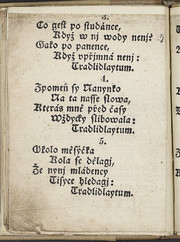 3.
Co gest po studánce,
Když w nj wody nenj?
Gako po panence,
Když vpřjmná nenj:
Tradlidlaytum.
4.
Zpomeň sy Nanynko
Na ta nasse slowa,
Kterás mně před časy
Wždycky slibowala:
Tradlidlaytum.
5.
Okolo měsýčka
Kola se dělagj,
Že nynj mládency
Tisyce hledagj:
Tradlidlaytum.